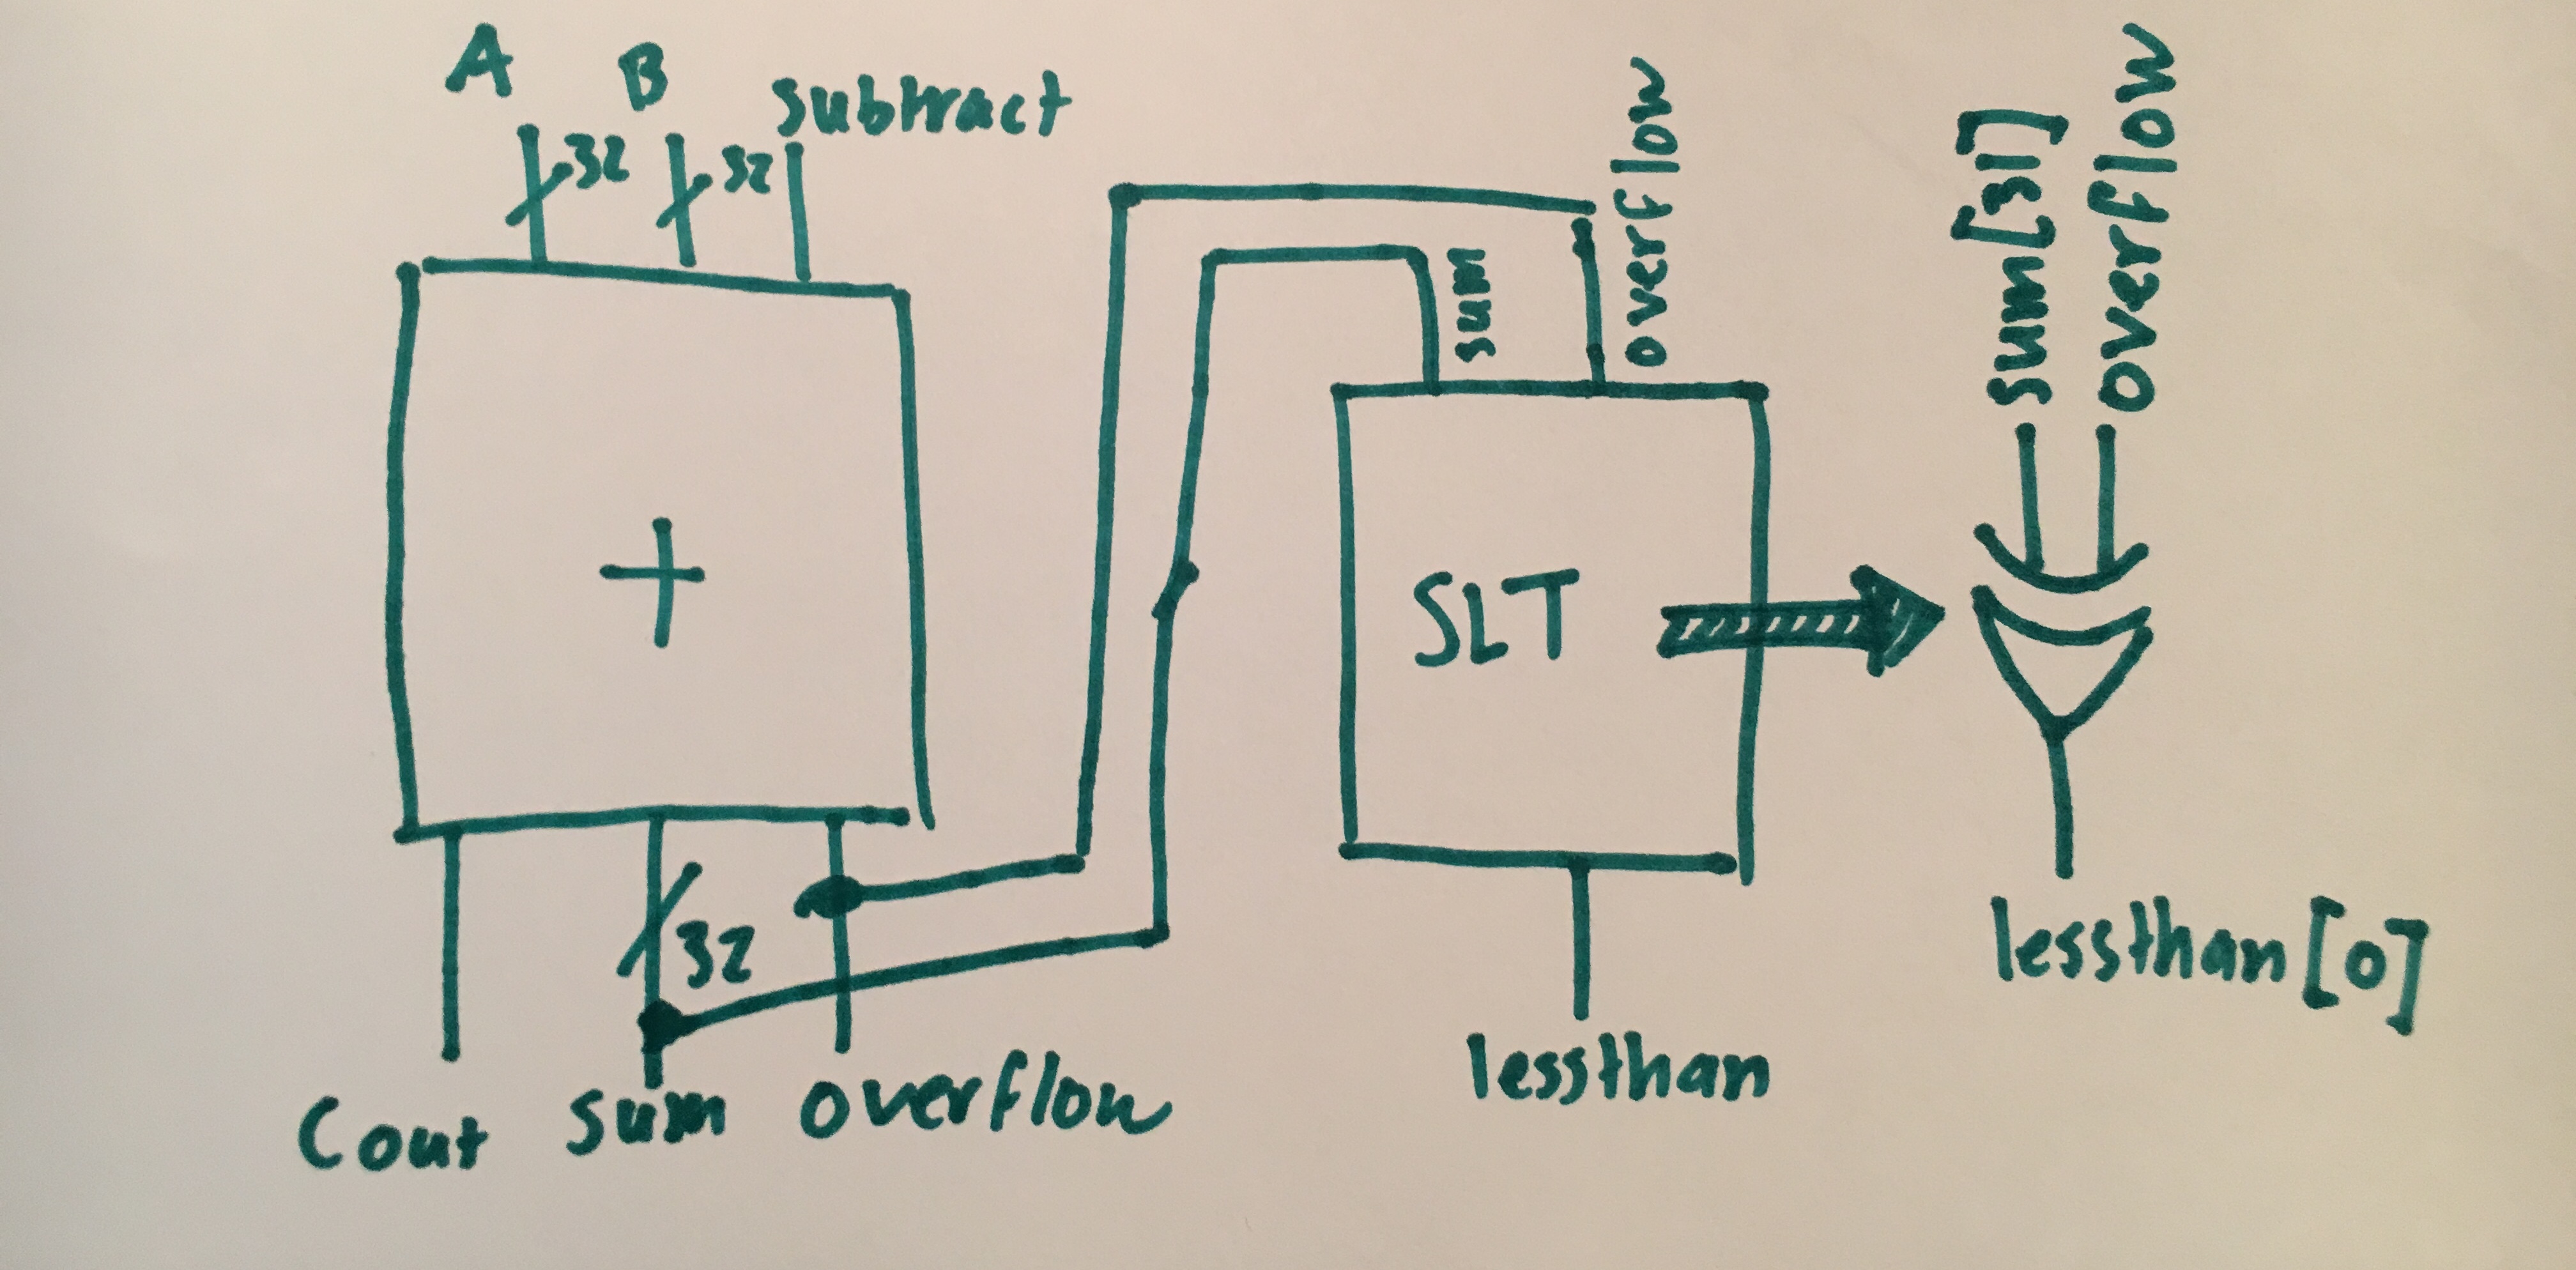 A
B
subtract
32
32
+
32
Cout
sum
overflow
sum
overflow
SLT
lessthan
sum[31]
overflow
lessthan[0]